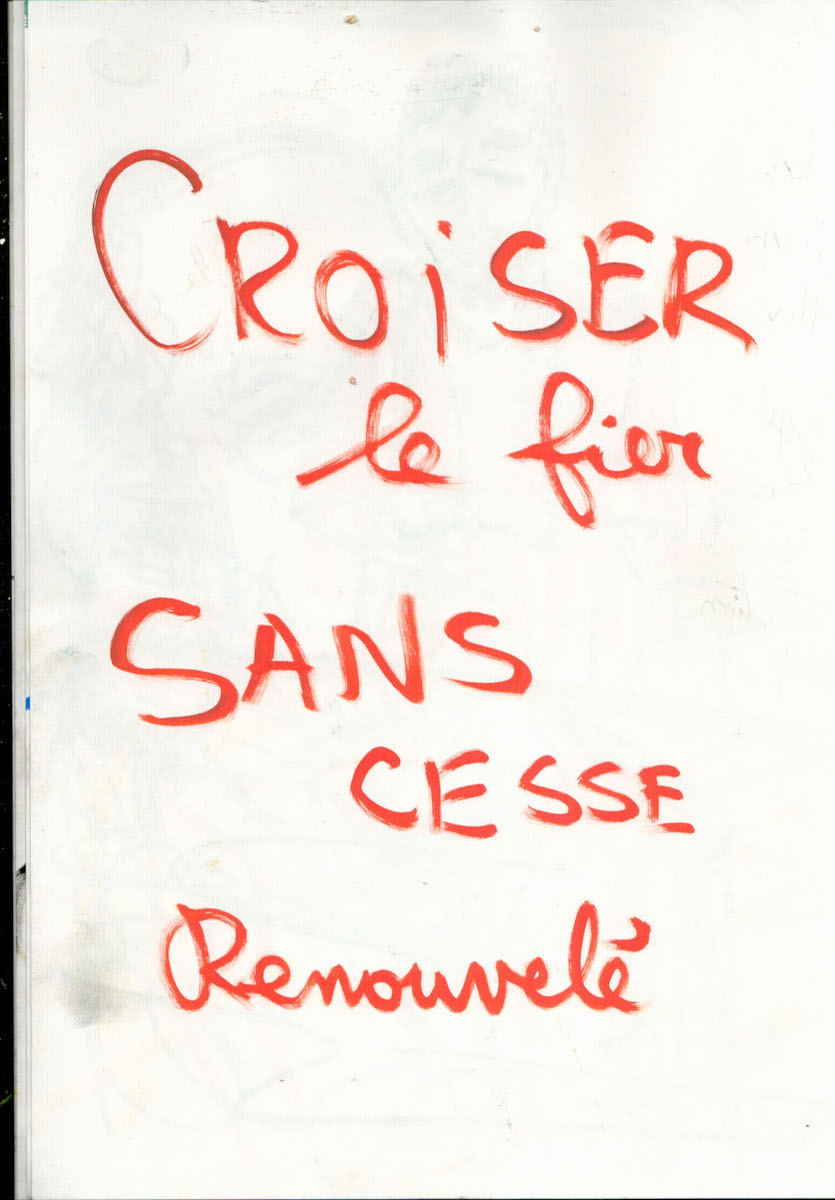 CROiSER
le fier
SANS
CESSE
Renouvelé